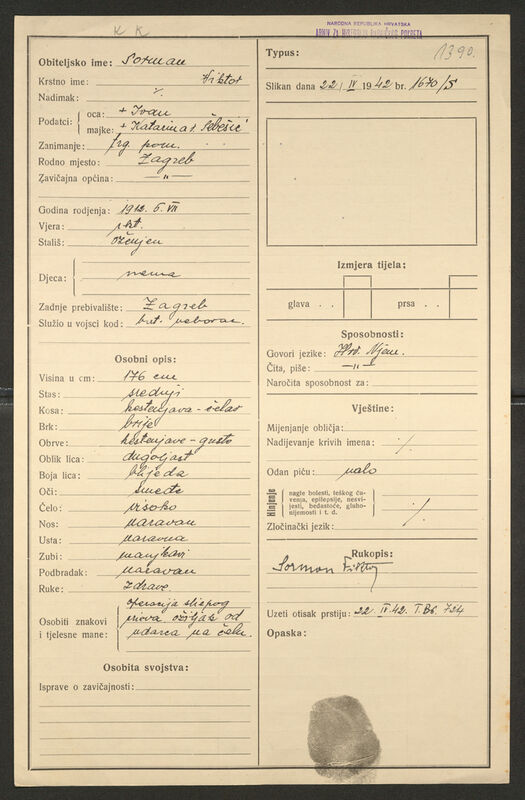 K K
NARODNA REPUBLIKA HRVATSKA
ARHIV ZA HISTORIJU RADNIČKOG POKRETA
1390.
Obiteljsko ime: Sorman
Krstno ime: Viktor
Nadimak: ∕.
Podatci: { oca: + Ivan
majke: + Katarina r. Šebešić
Zanimanje: trg. pom.
Rodno mjesto: Zagreb
Zavičajna općina: —„—
Godina rodjenja: 1912. 6. VII
Vjera:
Stališ: oženjen
Djeca: { nema
Zadnje prebivalište: Zagreb
Služio u vojsci kod:
Osobni opis:
Visina u cm: 176 cm
Stas: srednji
Kosa: kestenjava - ćelav
Brk: brije
Obrve: kestenjave - gusto
Oblik lica: dugoljast
Boja lica: blijeda
Oči: smeđe
Čelo: visoko
Nos: naravan
Usta: naravna
Zubi: manjkavi
Podbradak: naravan
Ruke: zdrave
Osobiti znakovi i tjelesne mane: { operacija sliepog
criova, ožiljak od
udarca na čelu.
Osobita svojstva:
Isprave o zavičajnosti:
Typus:
Slikan dana 22/ IV 1942 br. 1670/S
Izmjera tijela:
glava . . prsa . .
Sposobnosti:
Govori jezike: Hrv. Njem.
Čita, piše: —„—
Naročita sposobnost za:
Vještine:
Mijenjanje obličja:
Nadijevanje krivih imena: ∕.
Odan piću: malo
Hinjanje { nagle bolesti, teškog ču-
venja, epilepsije, nesvi-
jesti, bedastoće, gluho-
nijemosti i t. d. } ∕.
Zločinački jezik:
Rukopis:
Sorman Viktor
Uzeti otisak prstiju: 22. IV. 42. T. Br. 724
Opaska: